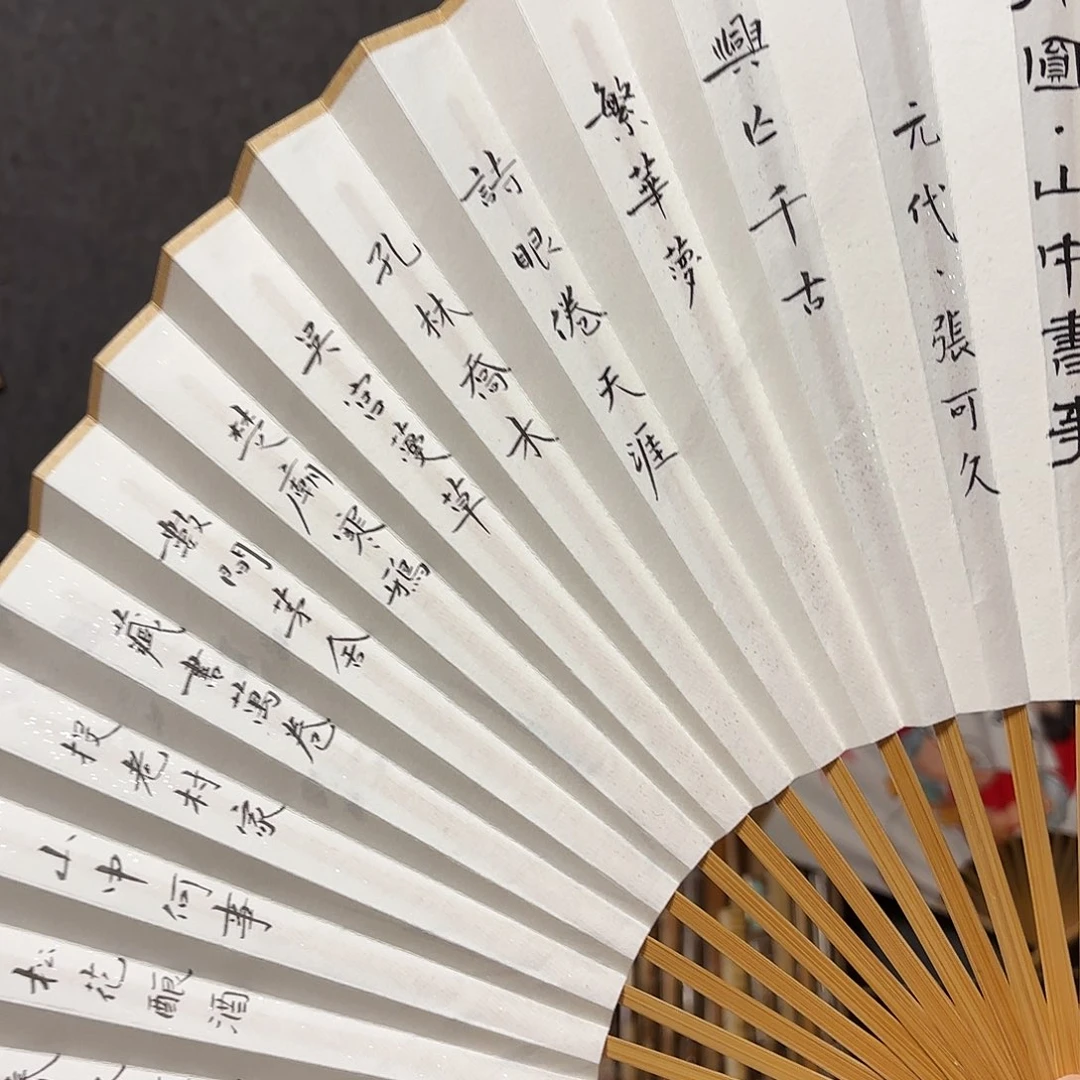 圓·山中書事
元代·張可久
興亡千古
繁華夢
詩眼倦天涯
孔林喬木
吳宮蔓草
楚廟寒鴉
數間茅舍
藏書萬卷
投老村家
山中何事
松花釀酒